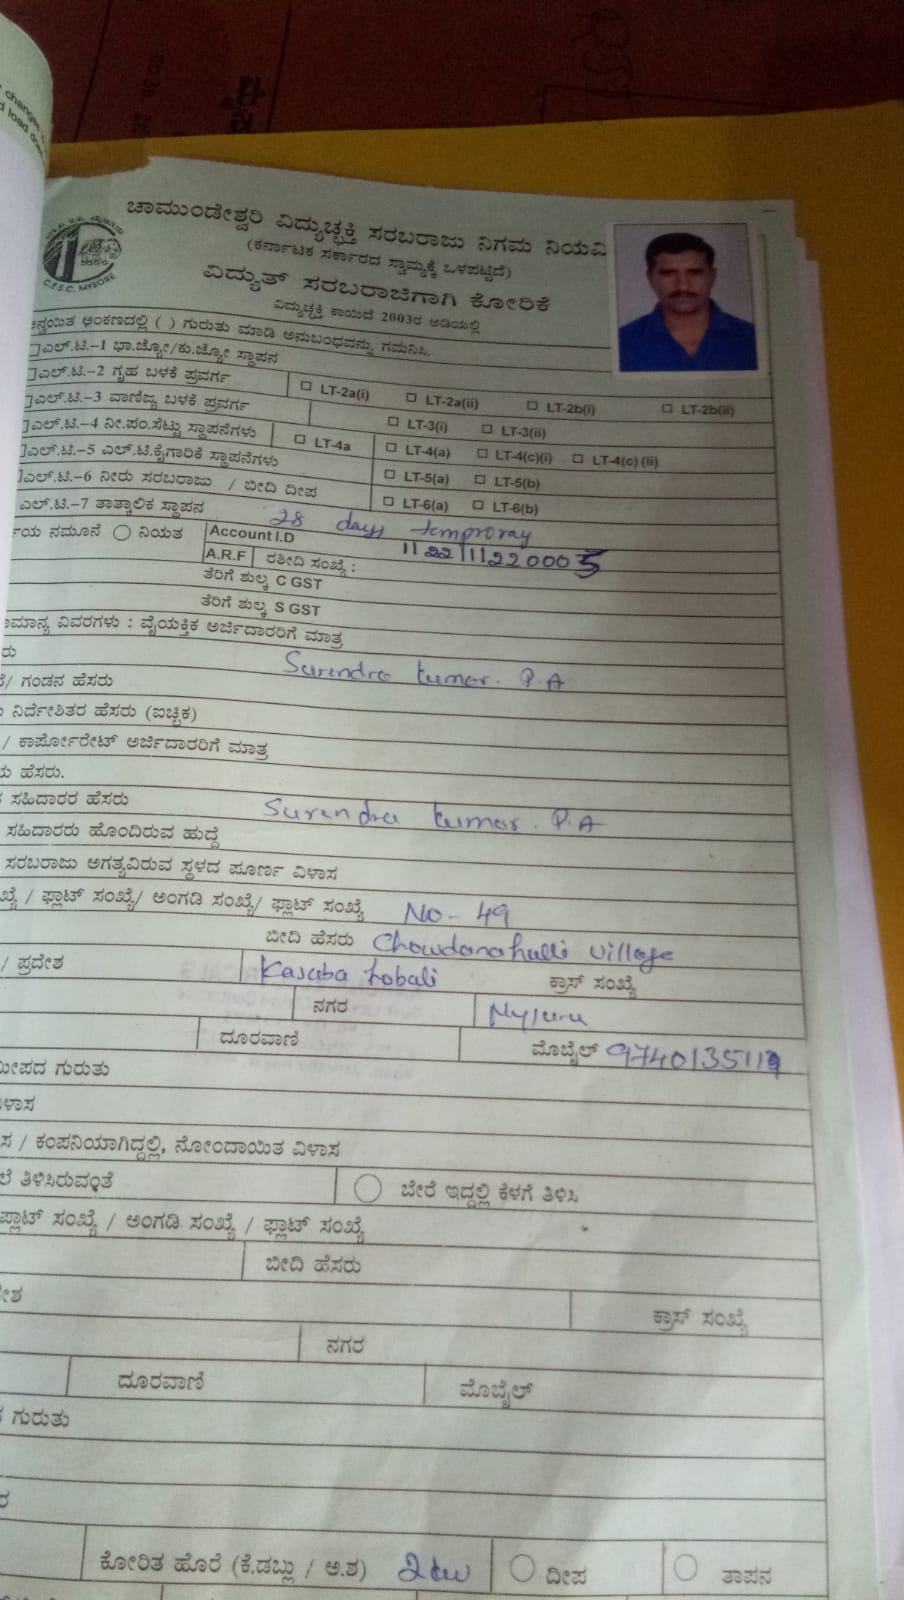 ಚಾಮುಂಡೇಶ್ವರಿ ವಿದ್ಯುಚ್ಛಕ್ತಿ ಸರಬರಾಜು ನಿಗಮ ನಿಯಮಿ
(ಕರ್ನಾಟಕ ಸರ್ಕಾರದ ಸ್ವಾಮ್ಯಕ್ಕೆ ಒಳಪಟ್ಟಿದೆ)
C.E.S.C. MYSORE
ವಿದ್ಯುತ್ ಸರಬರಾಜಿಗಾಗಿ ಕೋರಿಕೆ
ವಿದ್ಯುಚ್ಛಕ್ತಿ ಕಾಯಿದೆ 2003ರ ಅಡಿಯಲ್ಲಿ
ಅನ್ವಯಿತ ಅಂಕಣದಲ್ಲಿ ( ) ಗುರುತು ಮಾಡಿ ಅನುಬಂಧವನ್ನು ಗಮನಿಸಿ.
ಎಲ್.ಟಿ.-1 ಭಾ.ಜ್ಯೋ/ಕು.ಜ್ಯೋ ಸ್ಥಾಪನ
ಎಲ್.ಟಿ.-2 ಗೃಹ ಬಳಕೆ ಪ್ರವರ್ಗ LT-2a(i) LT-2a(ii) LT-2b(i) LT-2b(ii)
ಎಲ್.ಟಿ.-3 ವಾಣಿಜ್ಯ ಬಳಕೆ ಪ್ರವರ್ಗ LT-3(i) LT-3(ii)
ಎಲ್.ಟಿ.-4 ನೀ.ಪಂ.ಸೆಟ್ಟು ಸ್ಥಾಪನೆಗಳು LT-4a LT-4(a) LT-4(c)(i) LT-4(c)(ii)
ಎಲ್.ಟಿ.-5 ಎಲ್.ಟಿ.ಕೈಗಾರಿಕೆ ಸ್ಥಾಪನೆಗಳು LT-5(a) LT-5(b)
ಎಲ್.ಟಿ.-6 ನೀರು ಸರಬರಾಜು / ಬೀದಿ ದೀಪ LT-6(a) LT-6(b)
ಎಲ್.ಟಿ.-7 ತಾತ್ಕಾಲಿಕ ಸ್ಥಾಪನ 28 days temproray
ನಮೂನೆ ನಿಯತ Account I.D 1122/11220005
A.R.F ರಶೀದಿ ಸಂಖ್ಯೆ :
ತೆರಿಗೆ ಶುಲ್ಕ C GST
ತೆರಿಗೆ ಶುಲ್ಕ S GST
ವಿವರಗಳು : ವೈಯಕ್ತಿಕ ಅರ್ಜಿದಾರರಿಗೆ ಮಾತ್ರ
Surendra kumar. P.A
/ ಗಂಡನ ಹೆಸರು
ನಿರ್ದೇಶಿತರ ಹೆಸರು (ಐಚ್ಛಿಕ)
/ ಕಾರ್ಪೋರೇಟ್ ಅರ್ಜಿದಾರರಿಗೆ ಮಾತ್ರ
ಹೆಸರು.
ಸಹಿದಾರರ ಹೆಸರು Surendra kumar. P.A
ಸಹಿದಾರರು ಹೊಂದಿರುವ ಹುದ್ದೆ
ಸರಬರಾಜು ಅಗತ್ಯವಿರುವ ಸ್ಥಳದ ಪೂರ್ಣ ವಿಳಾಸ
/ ಫ್ಲಾಟ್ ಸಂಖ್ಯೆ/ ಅಂಗಡಿ ಸಂಖ್ಯೆ/ ಫ್ಲಾಟ್ ಸಂಖ್ಯೆ NO- 49
ಬೀದಿ ಹೆಸರು Chowdanahalli village
/ ಪ್ರದೇಶ Kasaba hobali ಕ್ರಾಸ್ ಸಂಖ್ಯೆ
ನಗರ Mysuru
ದೂರವಾಣಿ ಮೊಬೈಲ್
ಗುರುತು
/ ಕಂಪನಿಯಾಗಿದ್ದಲ್ಲಿ, ನೋಂದಾಯಿತ ವಿಳಾಸ
ತಿಳಿಸಿರುವಂತೆ ಬೇರೆ ಇದ್ದಲ್ಲಿ ಕೆಳಗೆ ತಿಳಿಸಿ
ಪ್ಲಾಟ್ ಸಂಖ್ಯೆ / ಅಂಗಡಿ ಸಂಖ್ಯೆ / ಫ್ಲಾಟ್ ಸಂಖ್ಯೆ
ಬೀದಿ ಹೆಸರು
ಕ್ರಾಸ್ ಸಂಖ್ಯೆ
ನಗರ
ದೂರವಾಣಿ ಮೊಬೈಲ್
ಗುರುತು
ಕೋರಿತ ಹೊರೆ (ಕೆ.ಡಬ್ಲು / ಅ.ಶ) 2kw ದೀಪ ತಾಪನ